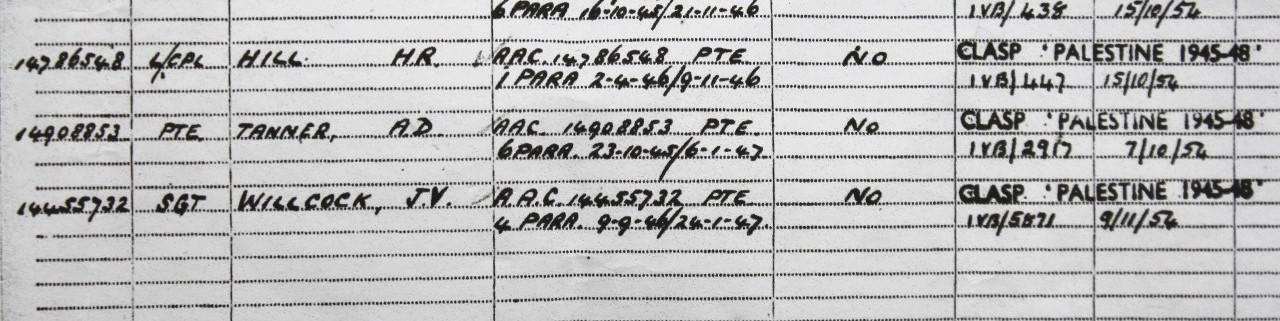 6 PARA 16-10-45/21-11-46 IVB/438 15/10/54
14786548 L/CPL HILL H.R. AAC. 14786548 PTE NO CLASP 'PALESTINE 1945-48'
1 PARA 2-4-46/9-11-46 IVB/447 15/10/54
14908853 PTE TANNER, A.D. AAC. 14908853 PTE. NO CLASP 'PALESTINE 1945-48'
6 PARA. 23-10-45/6-1-47. IVB/2917 7/10/54
14455732 SGT WILLCOCK, J.V. A.A.C. 14455732 PTE NO CLASP 'PALESTINE 1945-48'
4 PARA. 9-9-46/24-1-47. IVB/5871 9/11/54